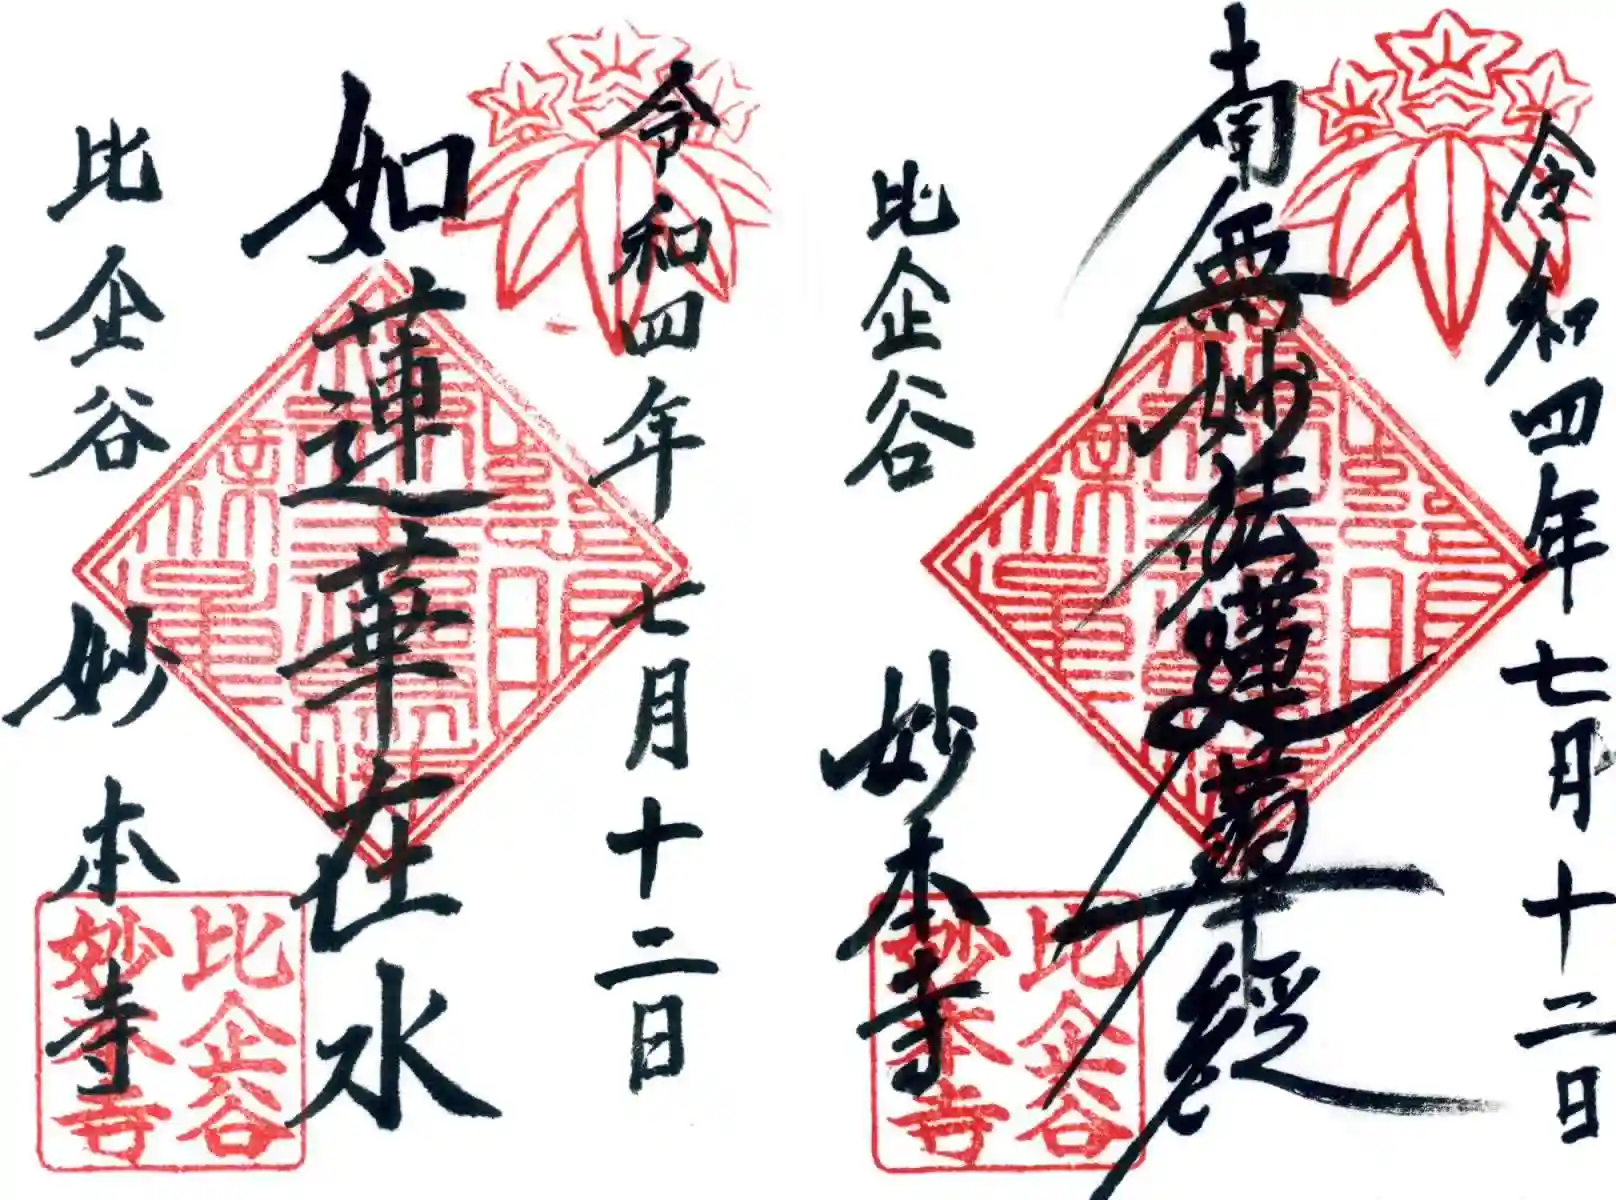 令和四年七月十二日
南無妙法蓮華経
比企谷 妙本寺
比企谷
妙本寺
令和四年七月十二日
如蓮華在水
比企谷 妙本寺
比企谷
妙本寺